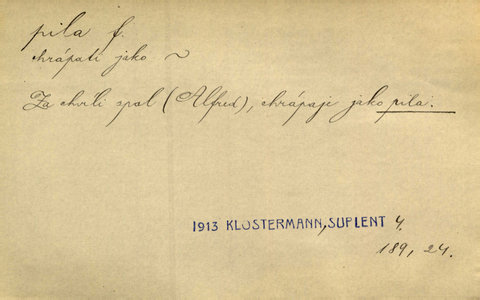 pila f.
chrápati jako ~
Za chvíli spal (Alfred), chrápaje jako pila.
1913 KLOSTERMANN, SUPLENT 4.
189, 24.